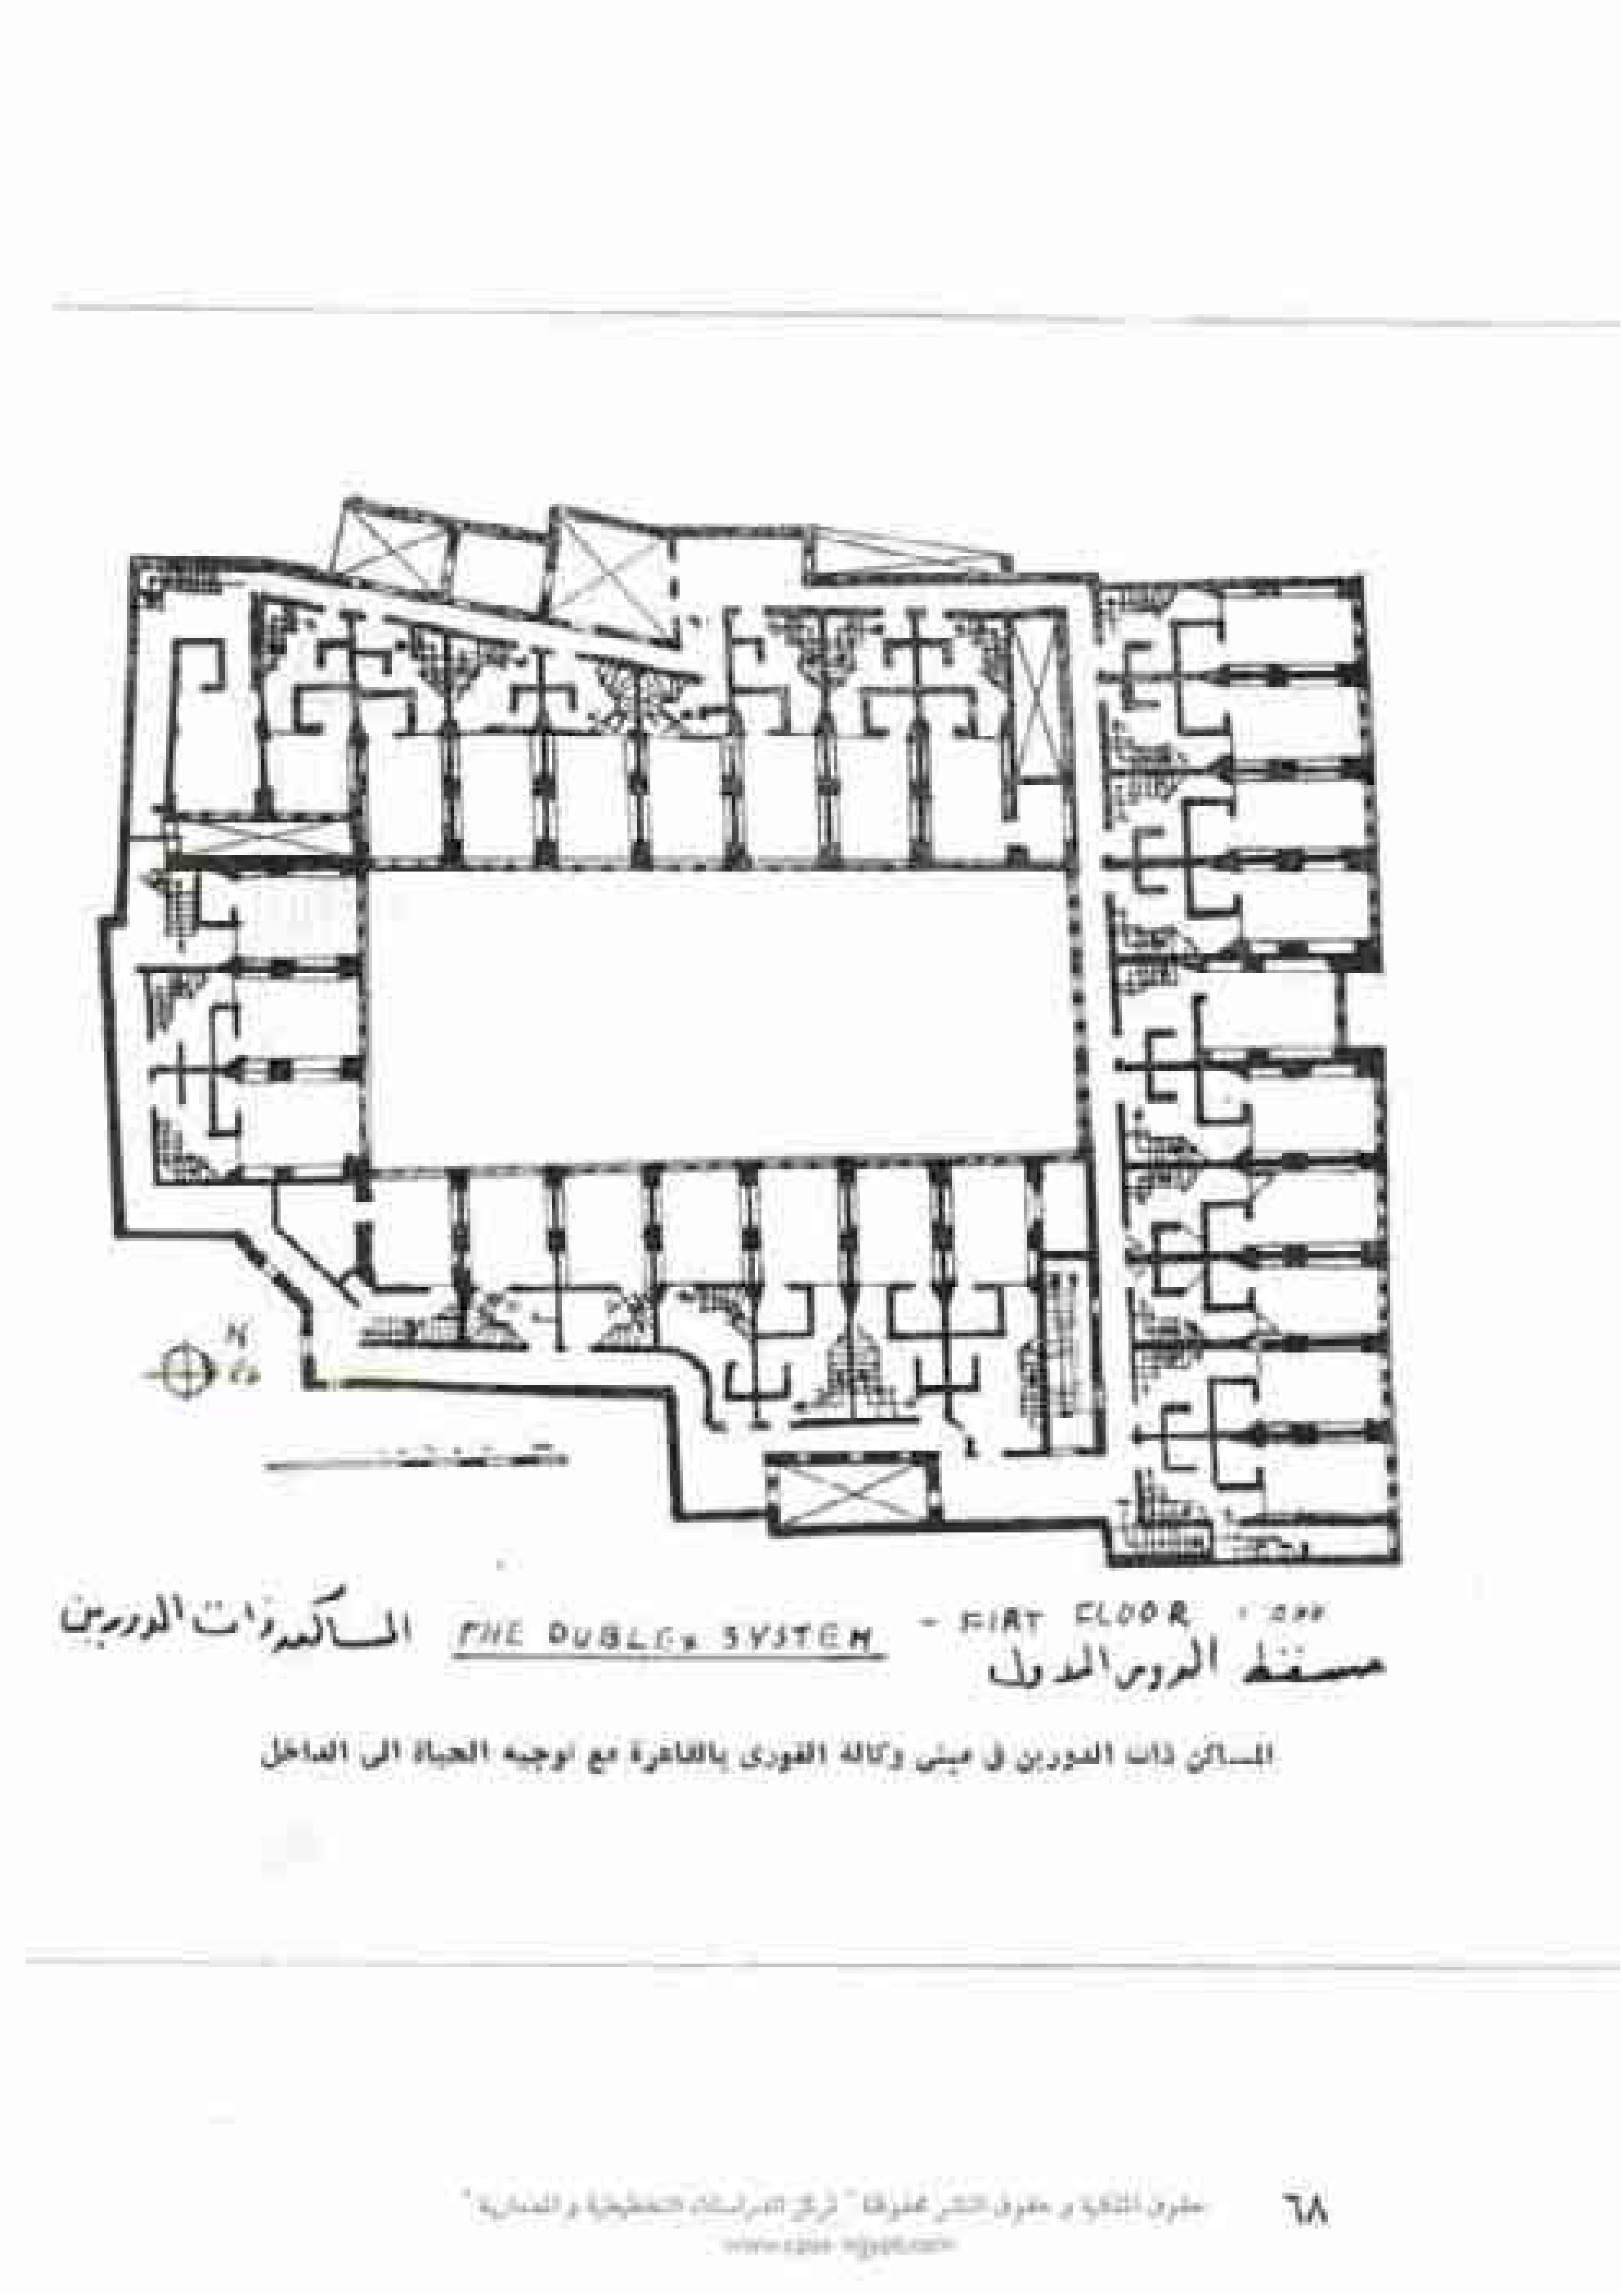 N
المساكن ذات الدورين THE DUBLEX SYSTEM - FIRT FLOOR
مسقط الدور الأول
المساكن ذات الدورين في مبنى وكالة الغورى بالقاهرة مع توجيه الحياة الى الداخل
حقوق الملكية و حقوق النشر محفوظة " مركز الدراسات التخطيطية و المعمارية " ٦٨